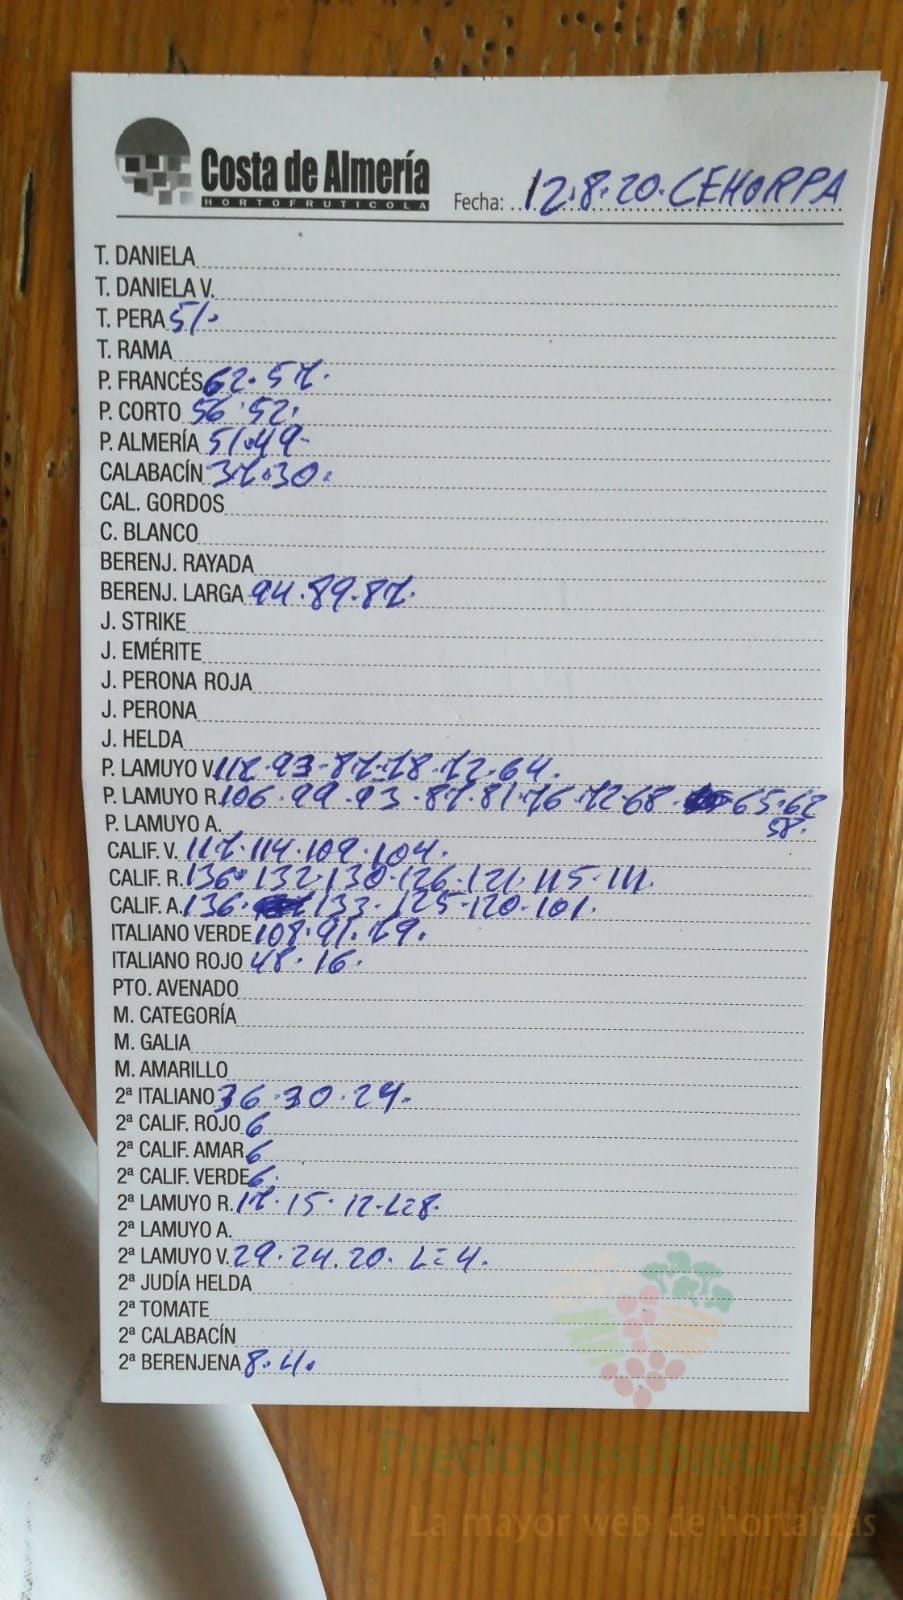 Costa de Almería
HORTOFRUTICOLA
Fecha: 12.8.20.CEHORPA
T. DANIELA
T. DANIELA V.
T. PERA 51.
T. RAMA
P. FRANCÉS 62.57.
P. CORTO 56.52.
P. ALMERÍA 51.49-
CALABACÍN 37.30.
CAL. GORDOS
C. BLANCO
BERENJ. RAYADA
BERENJ. LARGA 94.89.87.
J. STRIKE
J. EMÉRITE
J. PERONA ROJA
J. PERONA
J. HELDA
P. LAMUYO V. 117.93-87.78.72.64.
P. LAMUYO R. 106.99.93.87.81.76.72.68.65.62
58.
P. LAMUYO A.
CALIF. V. 117.114.109.104.
CALIF. R. 136.132.130.126.121.115.111.
CALIF. A. 136.133.125-120-101.
ITALIANO VERDE 108.91.79.
ITALIANO ROJO 48.16.
PTO. AVENADO
M. CATEGORÍA
M. GALIA
M. AMARILLO
2ª ITALIANO 36.30.24.
2ª CALIF. ROJO 6
2ª CALIF. AMAR 6
2ª CALIF. VERDE 6.
2ª LAMUYO R. 17.15.12.L=8.
2ª LAMUYO A.
2ª LAMUYO V. 29.24.20. L=4.
2ª JUDÍA HELDA
2ª TOMATE
2ª CALABACÍN
2ª BERENJENA 8.4.
Preciosdesubasta.com
La mayor web de hortalizas